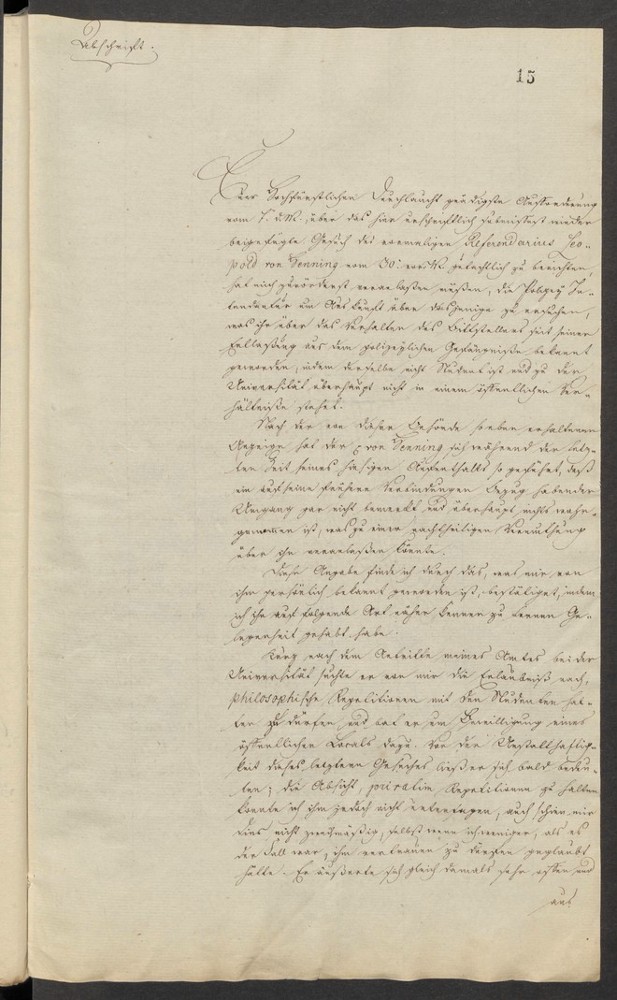 Abschrift.
15
Euer Hochfürstlichen Durchlaucht gnädigste Aufforderung
vom 7. d. M., über das hier urschriftlich gehorsamst wieder
beigefügte Gesuch des vormaligen Referendarius Leo-
pold von Henning vom 30. vor. M. gutachtlich zu berichten,
hat mich zuvörderst veranlassen müssen, die Polizey In-
tendantur um Auskunft über dasjenige zu ersuchen,
was ihr über das Verhalten des Bittstellers seit seiner
Entlassung aus dem polizeylichen Gefängnisse bekannt
geworden, indem derselbe nicht Student ist und zu der
Universität überhaupt nicht in einem öffentlichen Ver-
hältnisse stehet.
Nach der von dieser Behörde soeben erhaltenen
Anzeige hat der p von Henning sich während der letz-
ten Zeit seines hiesigen Aufenthalts so geführt, daß
ein auf seine frühere Verbindungen Bezug habender
Umgang gar nicht bemerkt und überhaupt nichts wahr-
genommen ist, was zu einer nachtheiligen Vermuthung
über ihn veranlassen könnte.
Diese Angabe finde ich durch das, was mir von
ihm persönlich bekannt geworden ist, bestätiget, indem
ich ihn auf folgende Art näher kennen zu lernen Ge-
legenheit gehabt habe.
Kurz nach dem Antritte meines Amtes bei der
Universität suchte er von mir die Erlaubniß nach,
philosophische Repetitionen mit den Studenten hal-
ten zu dürfen und bat er um Bewilligung eines
öffentlichen Locals dazu. Von der Unstatthaftig-
keit dieses letztern Gesuches ließ er sich bald bedeu-
ten; die Absicht, privatim Repetitionen zu halten
konnte ich ihm jedoch nicht untersagen, auch schien mir
dies nicht zweckmäßig, selbst wenn ich weniger, als es
der Fall war, ihm vertrauen zu dürfen geglaubt
hätte. Er äußerte sich gleich damals sehr offen und